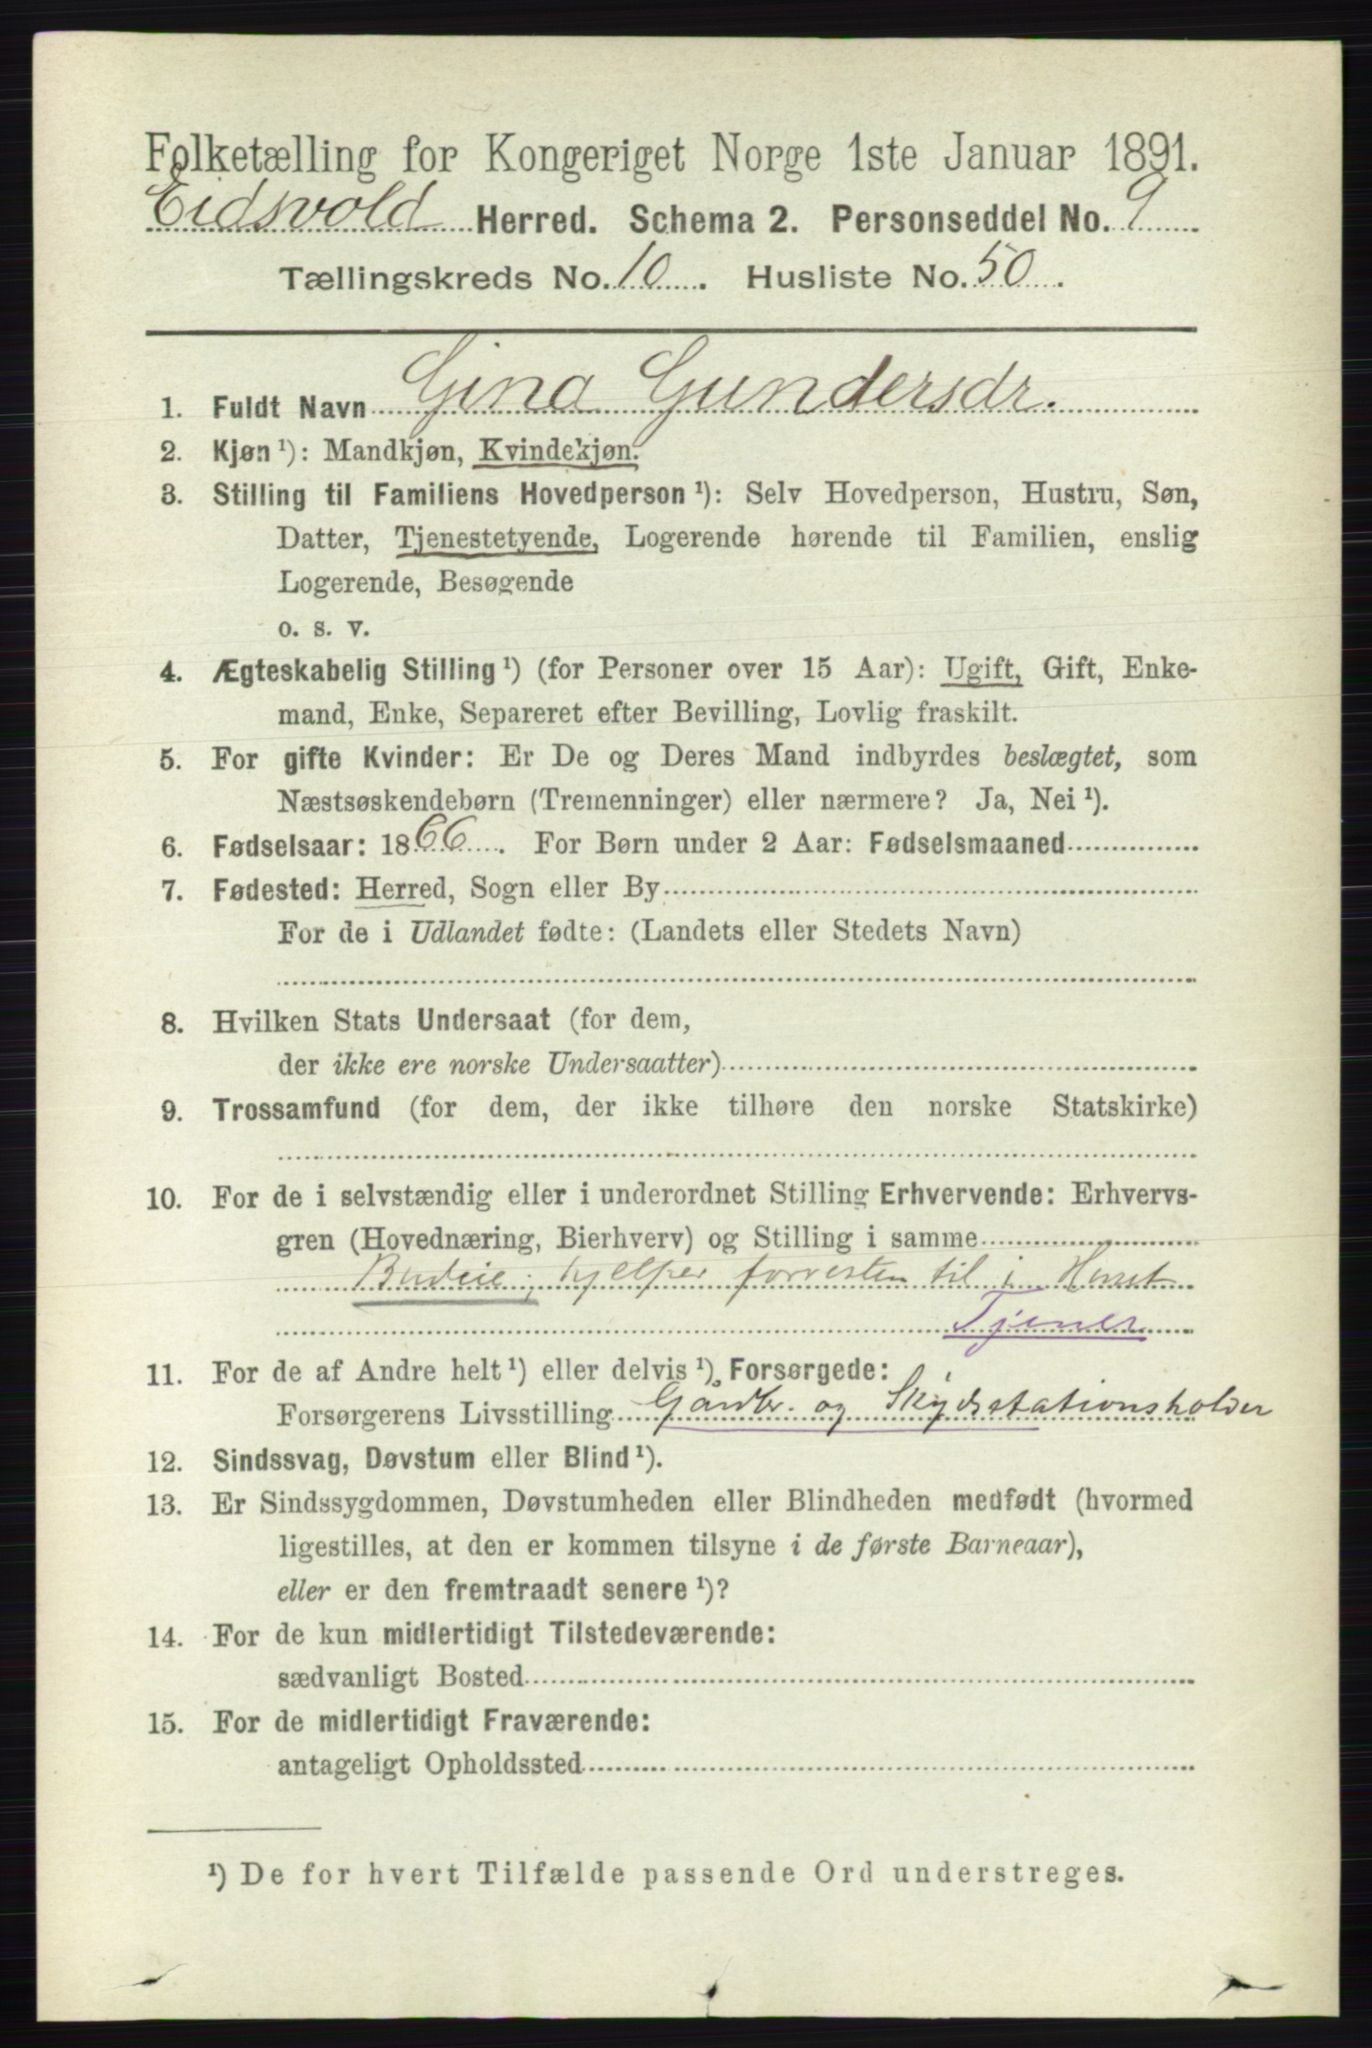 Folketælling for Kongeriget Norge 1ste Januar 1891.
Eidsvold Herred. Schema 2. Personseddel No. 9
Tællingskreds No. 10. Husliste No. 50.
1. Fuldt Navn Gina Gundersdr.
2. Kjøn ¹): Mandkjøn, Kvindekjøn.
3. Stilling til Familiens Hovedperson ¹): Selv Hovedperson, Hustru, Søn,
Datter, Tjenestetyende, Logerende hørende til Familien, enslig
Logerende, Besøgende
o. s. v.
4. Ægteskabelig Stilling ¹) (for Personer over 15 Aar): Ugift, Gift, Enke-
mand, Enke, Separeret efter Bevilling, Lovlig fraskilt.
5. For gifte Kvinder: Er De og Deres Mand indbyrdes beslægtet, som
Næstsøskendebørn (Tremenninger) eller nærmere? Ja, Nei ¹).
6. Fødselsaar: 1866. For Børn under 2 Aar: Fødselsmaaned
7. Fødested: Herred, Sogn eller By
For de i Udlandet fødte: (Landets eller Stedets Navn)
8. Hvilken Stats Undersaat (for dem,
der ikke ere norske Undersaatter)
9. Trossamfund (for dem, der ikke tilhøre den norske Statskirke)
10. For de i selvstændig eller i underordnet Stilling Erhvervende: Erhvervs-
gren (Hovednæring, Bierhverv) og Stilling i samme
Budeie; hjelper forresten til i Huset
Tjener
11. For de af Andre helt ¹) eller delvis ¹) Forsørgede:
Forsørgerens Livsstilling Gårdbr. og Skydsstationsholder
12. Sindssvag, Døvstum eller Blind ¹).
13. Er Sindssygdommen, Døvstumheden eller Blindheden medfødt (hvormed
ligestilles, at den er kommen tilsyne i de første Barneaar),
eller er den fremtraadt senere ¹)?
14. For de kun midlertidigt Tilstedeværende:
sædvanligt Bosted
15. For de midlertidigt Fraværende:
antageligt Opholdssted
¹) De for hvert Tilfælde passende Ord understreges.